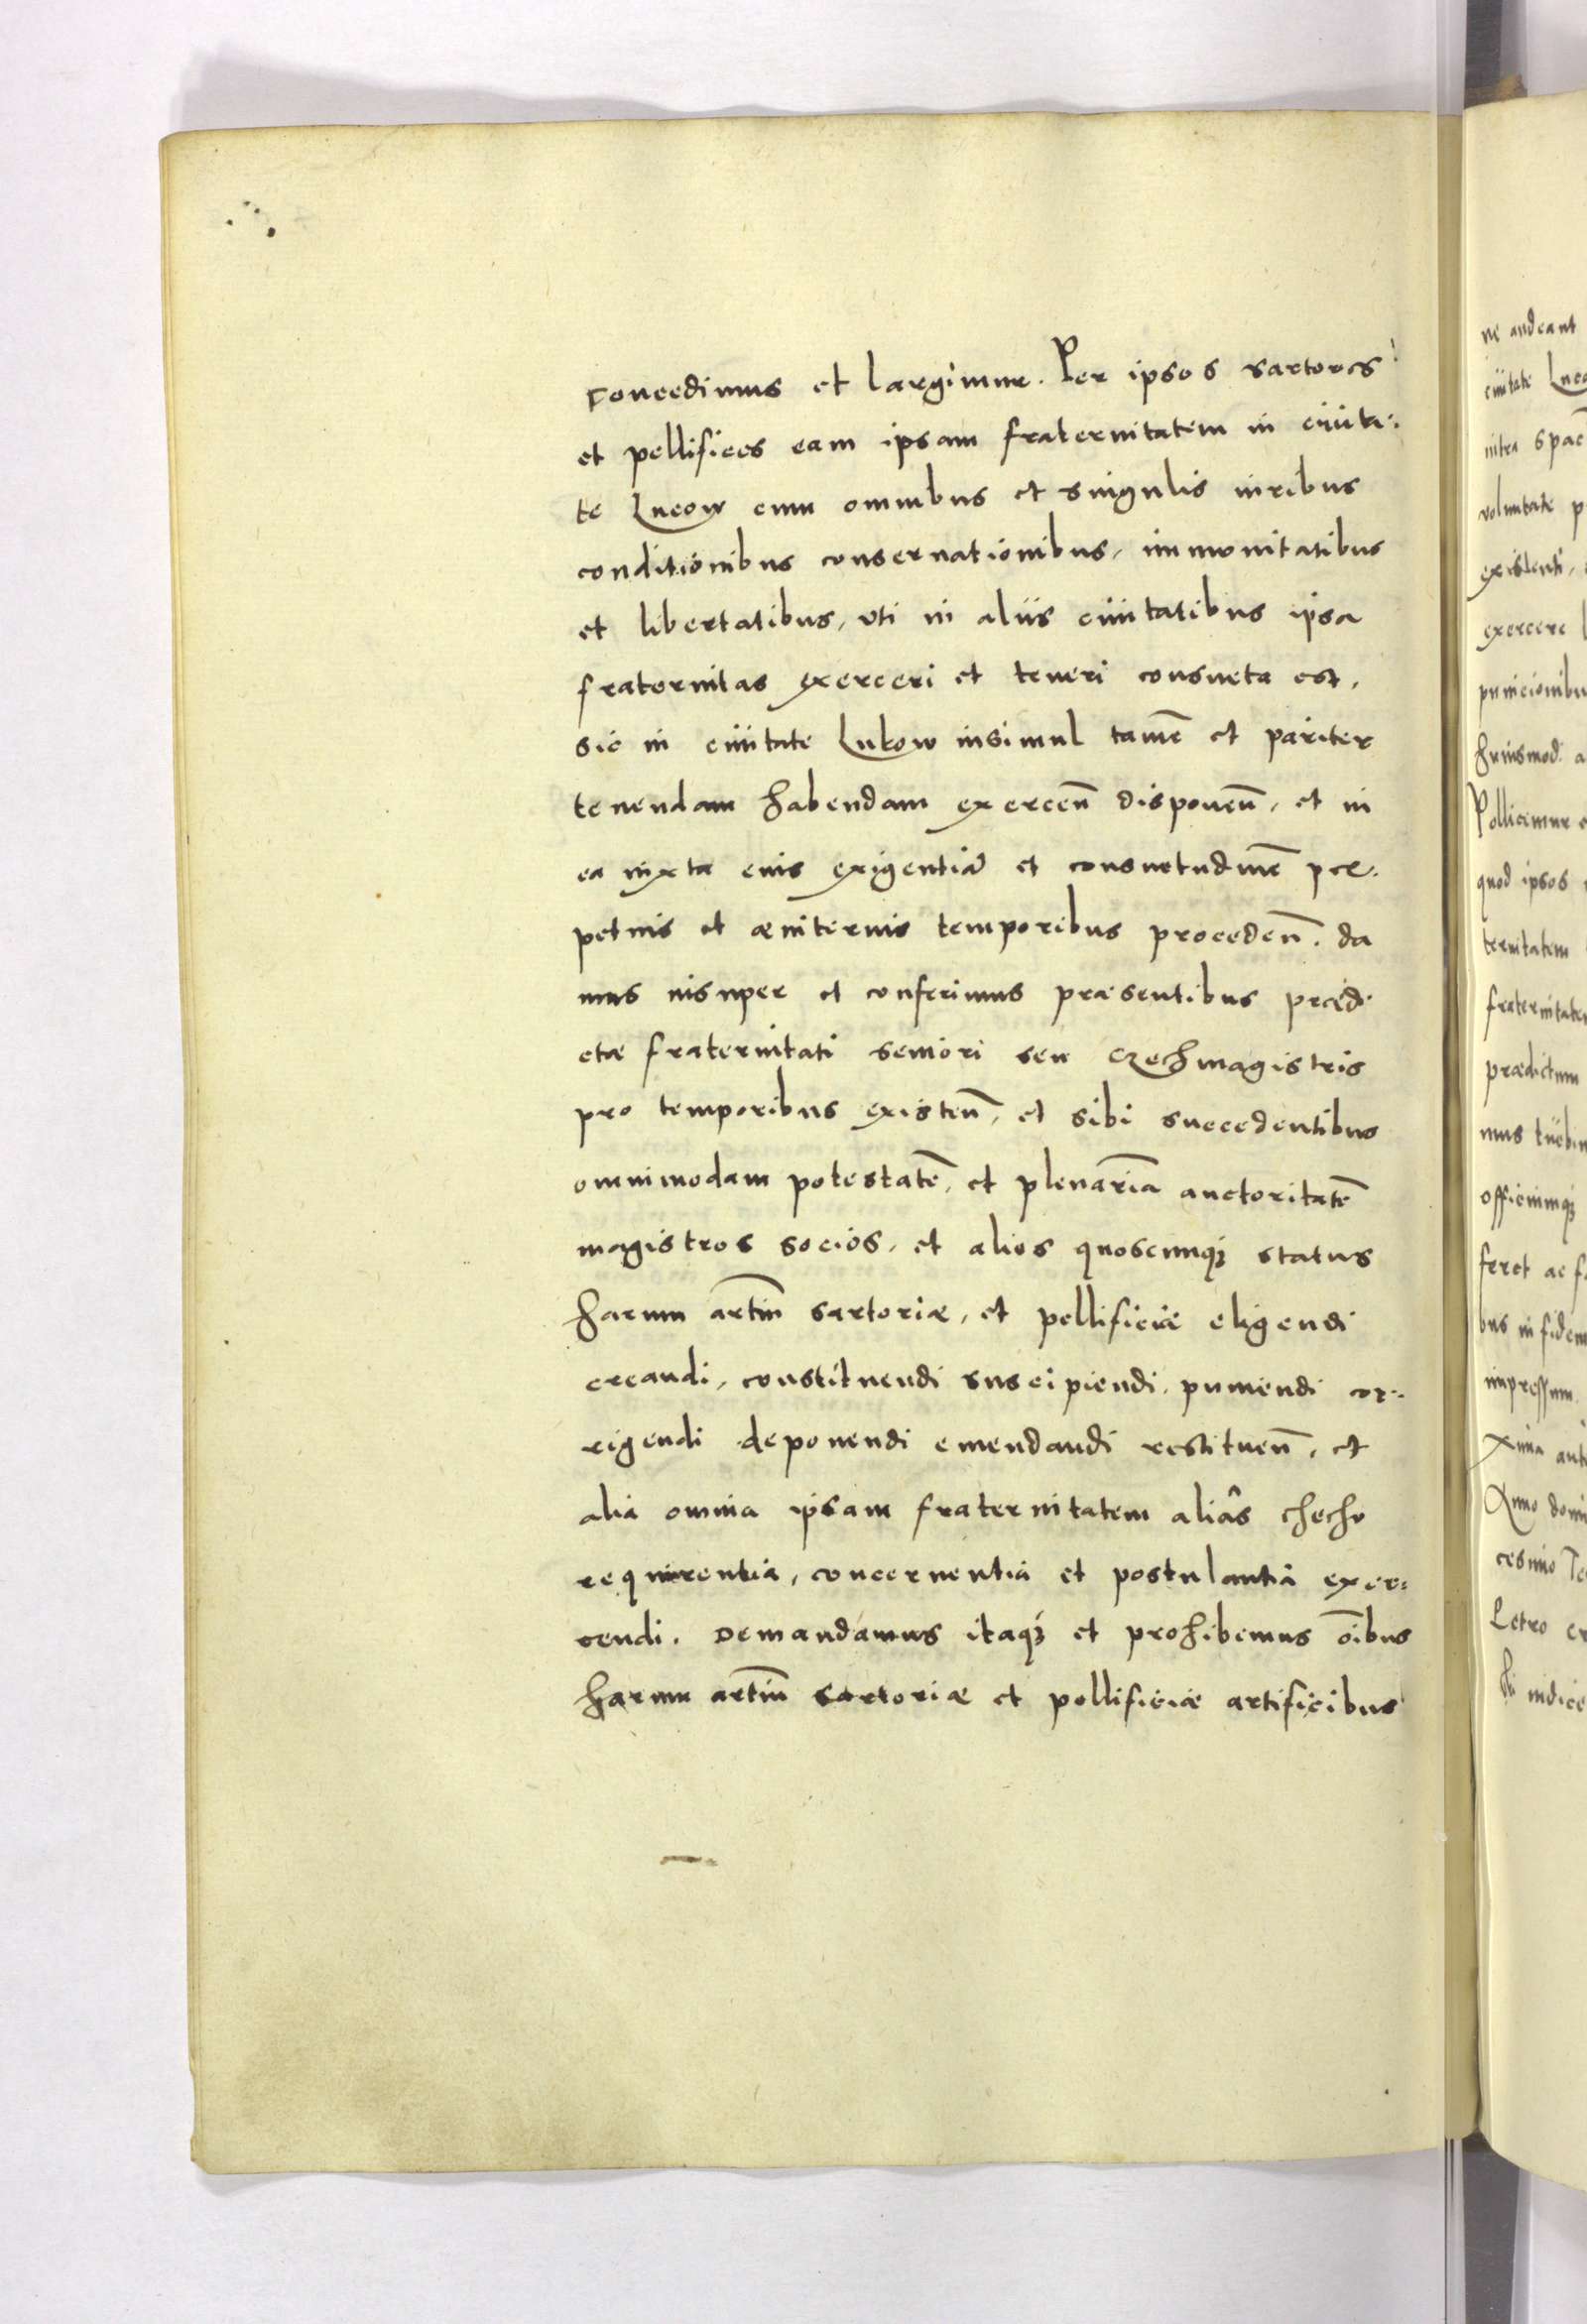 concedimus et largimur. Per ipsos sartores
et pellifices eam ipsam fraternitatem in ciuita-
te Lucow cum omnibus et singulis iuribus
conditionibus conseruationibus, immonitatibus
et libertatibus, vti in aliis ciuitatibus ipsa
fraternitas exerceri et teneri consueta est,
sic in ciuitate Lukow insimul tamē et pariter
tenendam habendam exercen̄ disponen̄, et in
ea iuxta eius exigentiā et consuetudinē per-
petuis et æuiternis temporibus proceden̄. da
mus insuper et conferimus præsentibus prædi
ctæ fraternitati seniori seu czechmagistris
pro temporibus existen̄, et sibi succedentibus
omnimodam potestatē, et plenariā auctoritatē
magistros socios, et alios quoscunqꝫ status
harum artiū sartoriæ, et pellificiæ eligendi
creandi, constituendi suscipiendi, puniendi cor-
rigendi deponendi emendandi restituen̄, et
alia omnia ipsam fraternitatem aliâs checho
requirentia, concernentia et postulantia exer=
cendi. Demandamus itaqꝫ et prohibemus oībus
harum artiū sartoriæ et pellificiæ artificibus
ne audeant
ciuitate
intra
voluntate
existenti,
exercere
punicionibu
huiusmod
Pollicemur
quod ipsos
ternitatem
fraternitatem
prædictum
mus
officiumqꝫ
feret ac
bus in fidem
impressum
xima
Anno
cesimo
Petro
iudice